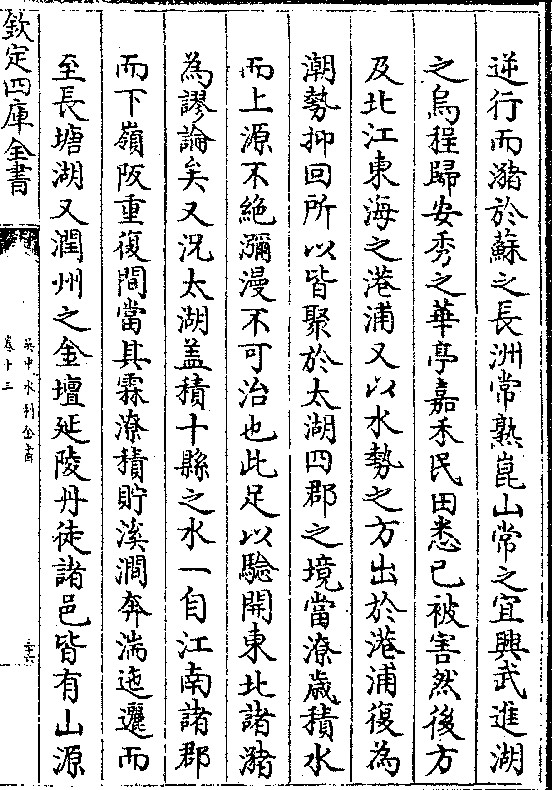 逆行而瀦於蘇之長洲常熟崑山常之宜興武進湖
之烏程歸安秀之華亭嘉禾民田悉已被害然後方
及北江東海之港浦又以水勢之方出於港浦復為
潮勢抑回所以皆聚於太湖四郡之境當潦歲積水
而上源不絶瀰漫不可治也此足以驗開東北諸瀦
為謬論矣又況太湖盖積十縣之水一自江南諸郡
而下嶺阪重復間當其霖潦積貯溪澗奔湍迤邐而
至長塘湖又潤州之金壇延陵丹徒諸邑皆有山源
欽定四庫全書
吳中水利全書
卷十三